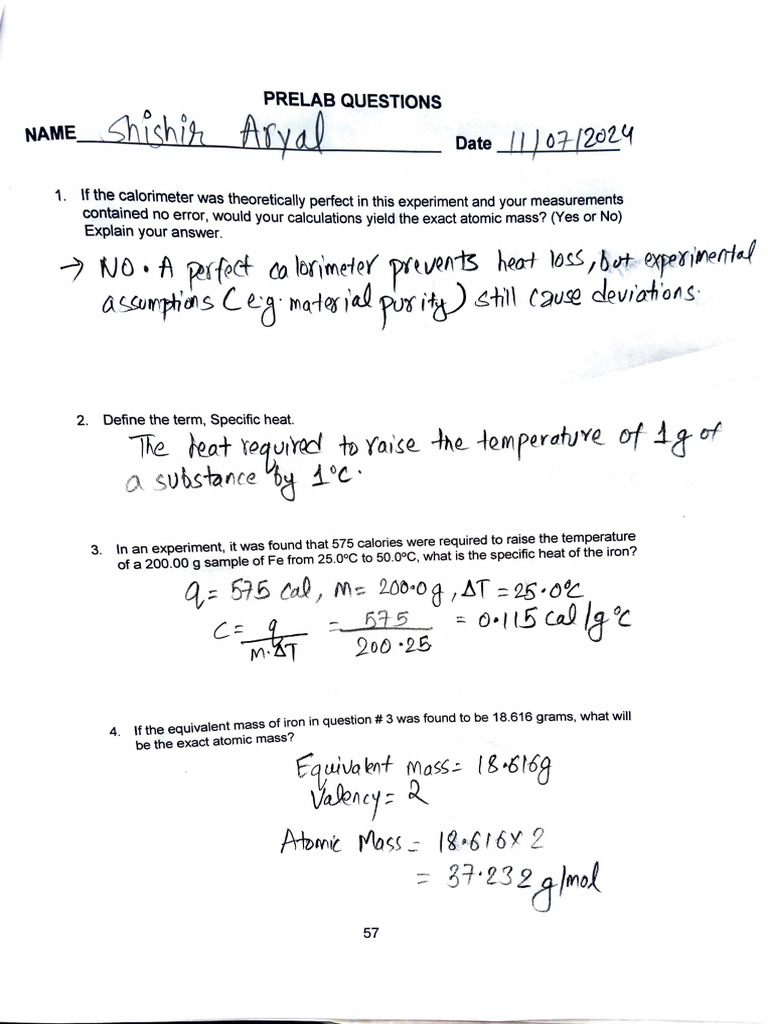 PRELAB QUESTIONS
NAME Shishir Aryal Date 11/07/2024
1. If the calorimeter was theoretically perfect in this experiment and your measurements
contained no error, would your calculations yield the exact atomic mass? (Yes or No)
Explain your answer.
→ NO. A perfect calorimeter prevents heat loss, but experimental
assumptions (e.g. material purity) still cause deviations.
2. Define the term, Specific heat.
The heat required to raise the temperature of 1g of
a substance by 1°C.
3. In an experiment, it was found that 575 calories were required to raise the temperature
of a 200.00 g sample of Fe from 25.0ºC to 50.0ºC, what is the specific heat of the iron?
q = 575 cal, m = 200.0g, ΔT = 25.0°C
C = q / M.ΔT = 575 / 200.25 = 0.115 cal/g °C
4. If the equivalent mass of iron in question # 3 was found to be 18.616 grams, what will
be the exact atomic mass?
Equivalent mass = 18.616g
Valency = 2
Atomic Mass = 18.616 x 2
= 37.232 g/mol
57